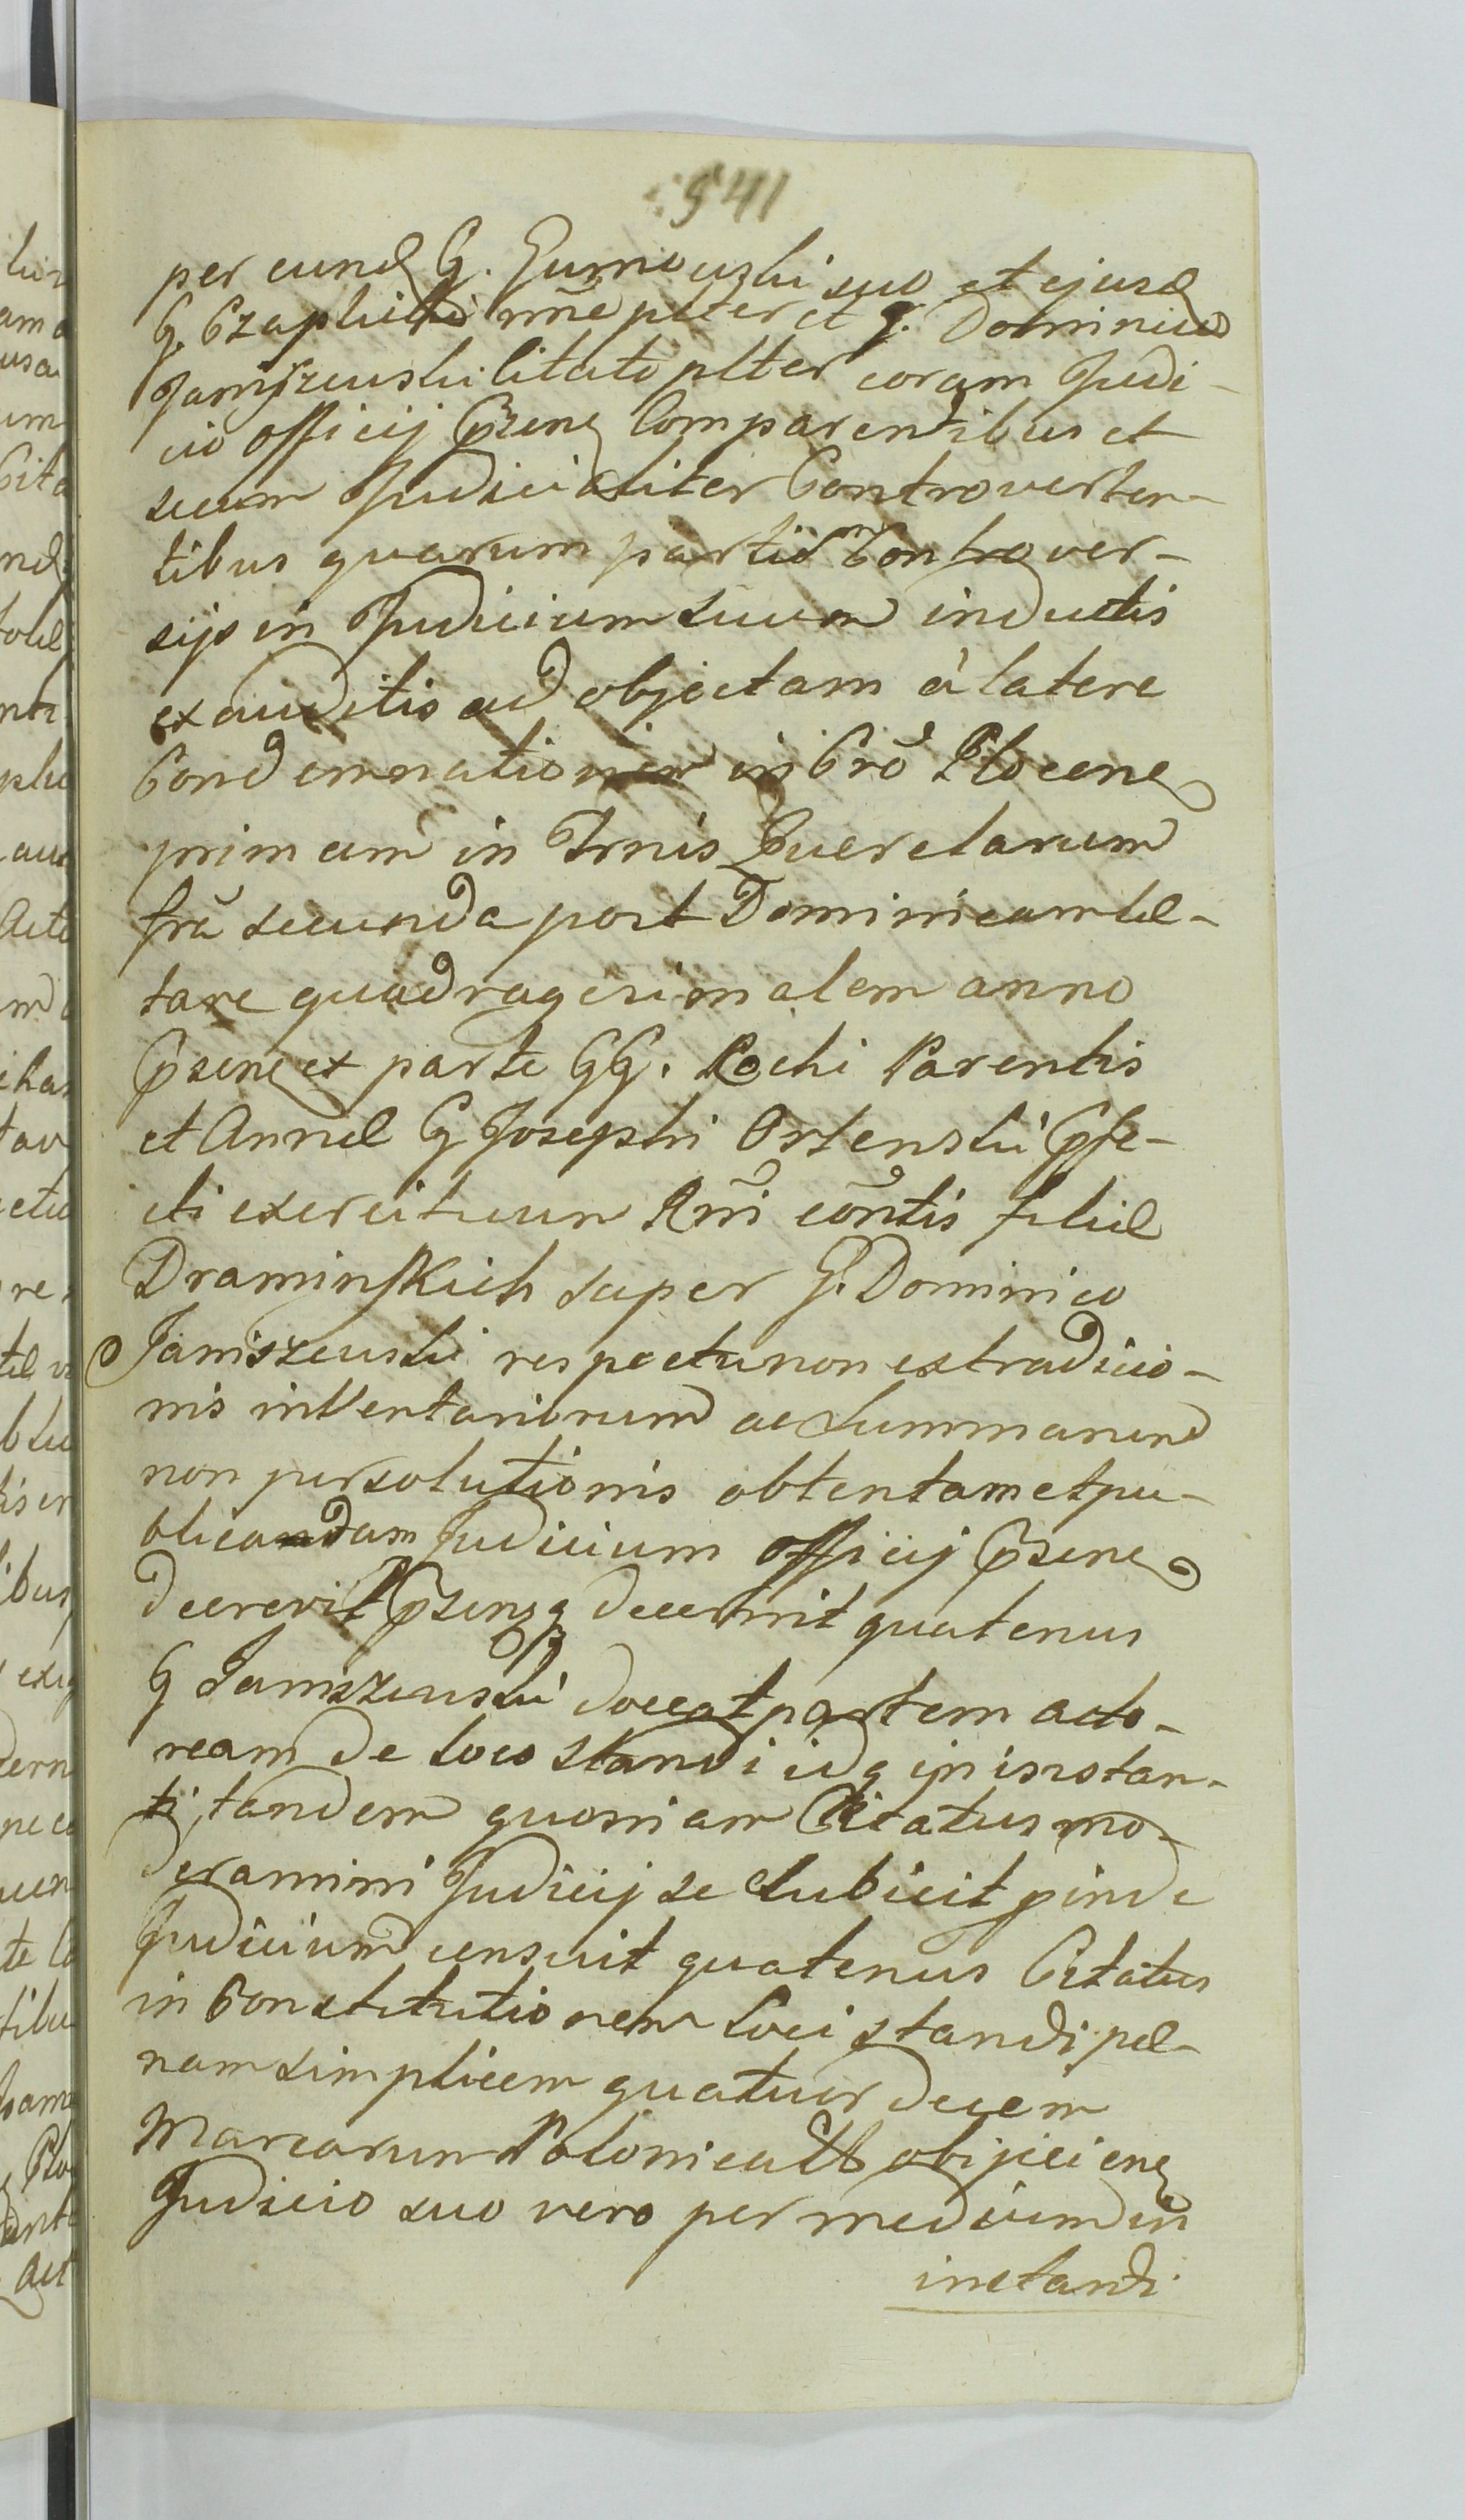 541
per eund G. Gumowski suo et ejusd
G. Czaplicki nõe plter et G. Dominico
Janiszewski citato plter coram Judi-
cio Officij Przene Comparentibus et
secum Judicialiter Controverten-
tibus quarum partium Controver-
sijs in Judicium suum inductis
exauditis ad objectam à latere
Condemnationem in Cro Plocene
primam in Trnis Querelarum
fra secunda post Dominicam lae-
tare quadragesimalem anno
Przene ex parte GG. Rochi Parentis
et Annae G Josephi Ostenski Pfe-
cti exercituum Rni coñtis filiae
Draminskich super G. Dominico
Janiszewski respectu non extradicio-
nis inventariorum ac Summarum
non persolutionis obtentam et pu-
blicandam Judicium Officij Przene
decrevit Przensq decernit quatenus
G Janiszewski doceat partem acto-
ream de loco standi idq in instan-
ti, tandem quoniam Citatus mo-
deramini Judicij se subiicit pinde
Judicium censuit quatenus Citatus
in Constitutionem loci standi pae-
nam simplicem quatuordecem
Marcarum Polonicalb objiciene
Judicio suo vero per medium in
instandi